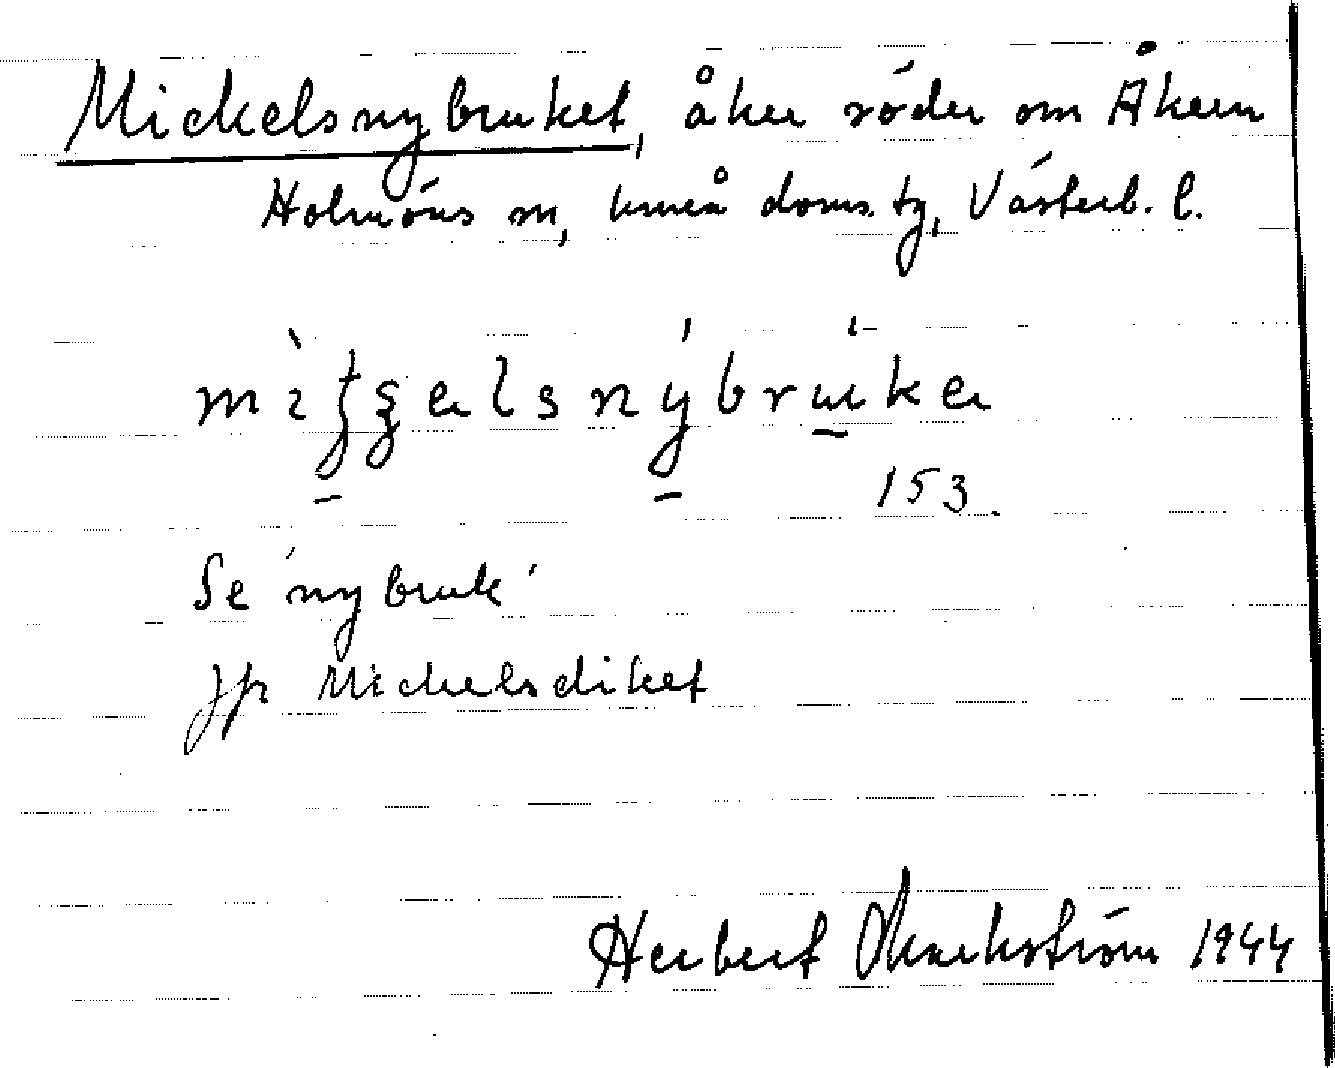 Mickelsnybruket, åker söder om Åkern
Holmöns sn, Umeå doms. tg, Västerb. l.
153.
Se 'nybruk'
Jfr Mickelsdiket
Herbert 1944